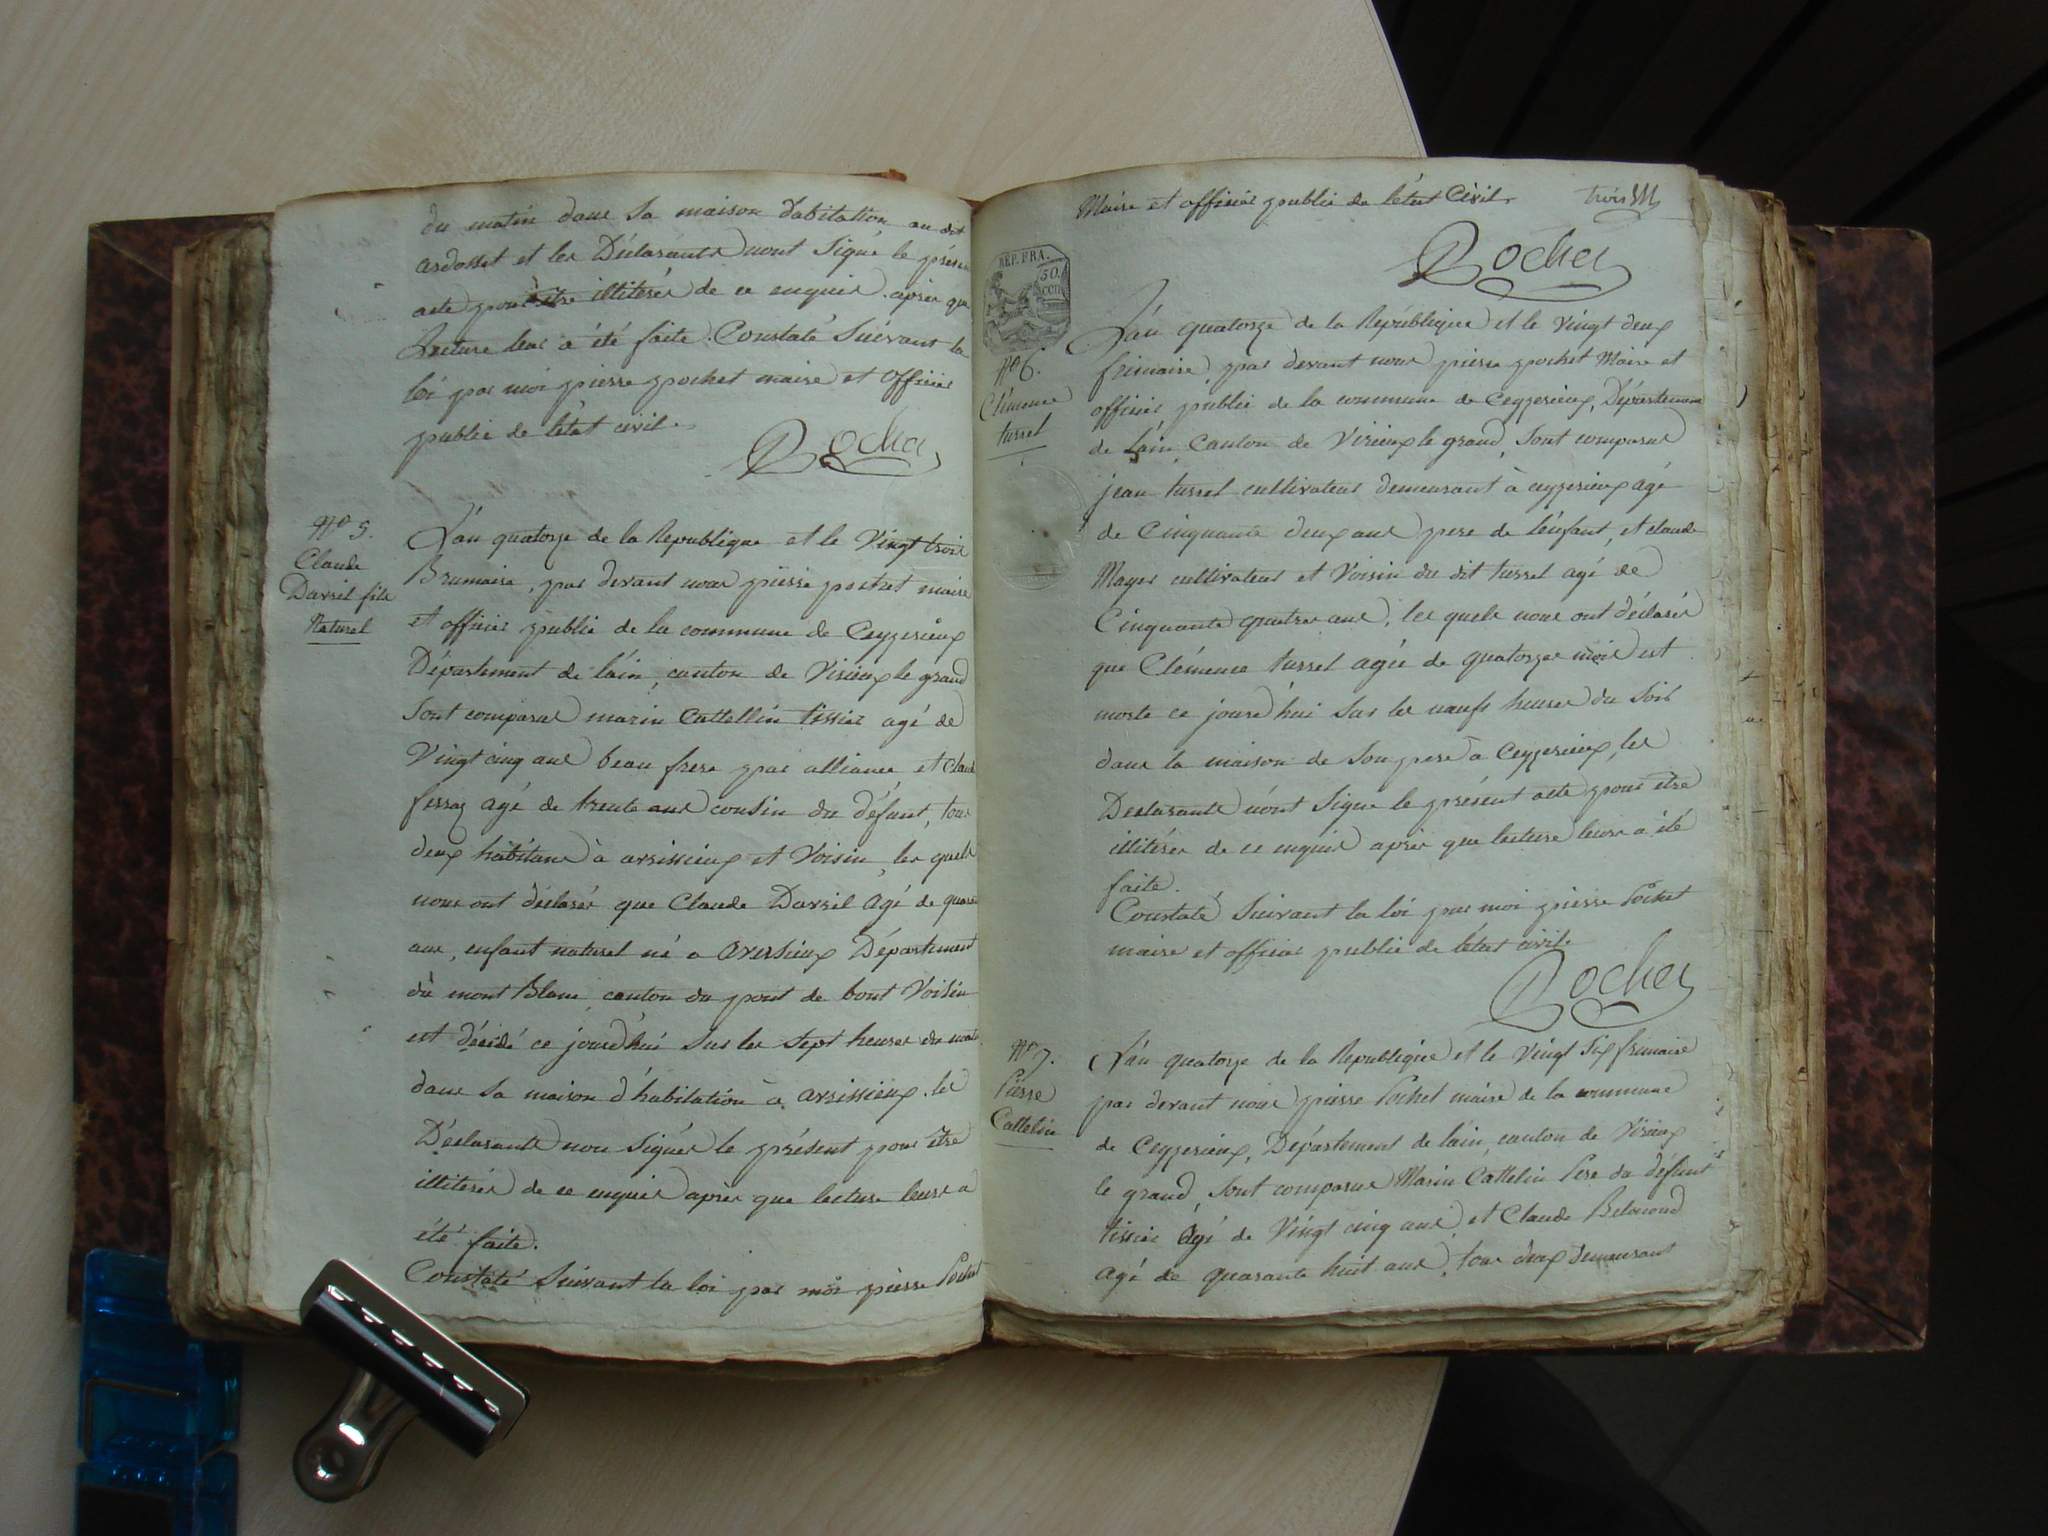 du matin dans sa maison d'abitation au dit
ardosset et les Déclarants n'ont Signé le présent
acte pour être illitérés de ce enquis. après que
Lecture leur a été faite. Constaté Suivant la
loi par moi pierre pochet maire et officier
public de l'état civil.
Pochet
N° 5.
Claude
Darvil fils
Naturel
L'an quatorze de la Republique et le Vingt trois
Brumaire, par devant nous pierre pochet maire
et officier public de la commune de Ceyzerieux
Département de l'ain, canton de Virieux le grand
Sont comparus marin Cattellin tissier agé de
Vingt cinq ans beau frere par alliance et Claude
ferraz agé de trente ans cousin du défunt, tous
deux habitans à avrissieux et Voisin, les quels
nous ont déclarés que Claude Darvil Agé de
ans, enfant naturel né a avrssieux Département
du mont Blanc, canton du pont de bont Voisin
est décédé ce jourd'hui Sur les sept heures du matin
dans sa maison d'habitation à avrissieux. les
Déclarants non Signés le présent pour être
illitérés de ce enquis après que lecture leurs a
été faite.
Constaté Suivant la loi par moi pierre Pochet
Maire et officier public de l'état Civil.
trois
Pochet
REP. FRA.
50.
CEN
N° 6.
Clémence
turrel
L'an quatorze de la Republique et le Vingt deux
frimaire, par devant nous pierre pochet Maire et
officier public de la commune de Ceyzerieux, Département
de l'ain, Canton de Virieux le grand, Sont comparus
jean turrel cultivateur demeurant à ceyzerieux agé
de Cinquante deux ans pere de l'enfant, et claude
Mayer cultivateur et Voisin du dit turrel agé de
Cinquante quatre ans, les quels nous ont déclarés
que Clémence turrel agée de quatorze mois est
morte ce jourd'hui Sur les neufs heures du Soir
dans la maison de Son pere à Ceyzerieux, les
Declarants n'ont Signé le présent acte pour être
illitérés de ce enquis après que lecture leurs a été
faite.
Constaté Suivant la loi par moi pierre Pochet
maire et officier public de l'état civil.
Pochet
N° 7.
Pierre
Cattelin
L'an quatorze de la Republique et le Vingt Six frimaire
par devant nous pierre Pochet maire de la commune
de Ceyzerieux, Département de l'ain, canton de Virieux
le grand, Sont comparus Marin Cattelin Pere du défunt
tissier Agé de Vingt cinq ans, et Claude
Agé de quarante huit ans, tous deux demeurant